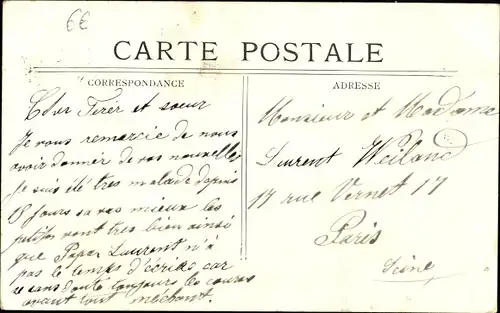 6€
CARTE POSTALE
CORRESPONDANCE
Cher Firér et soeur
Je vous remercie de nous
avoir donner de vos nouvelles
Je suis été tres malade depuis
15 jours sa vas mieux les
vont tres bien ainsi
que Papa, Laurent n'à
pas le temps d'écrire car
sans doute toujours les cours
avant tout méchant.
ADRESSE
Monsieur et Madame
Laurent Weiland
17 rue Vernet 17
Paris
Seine